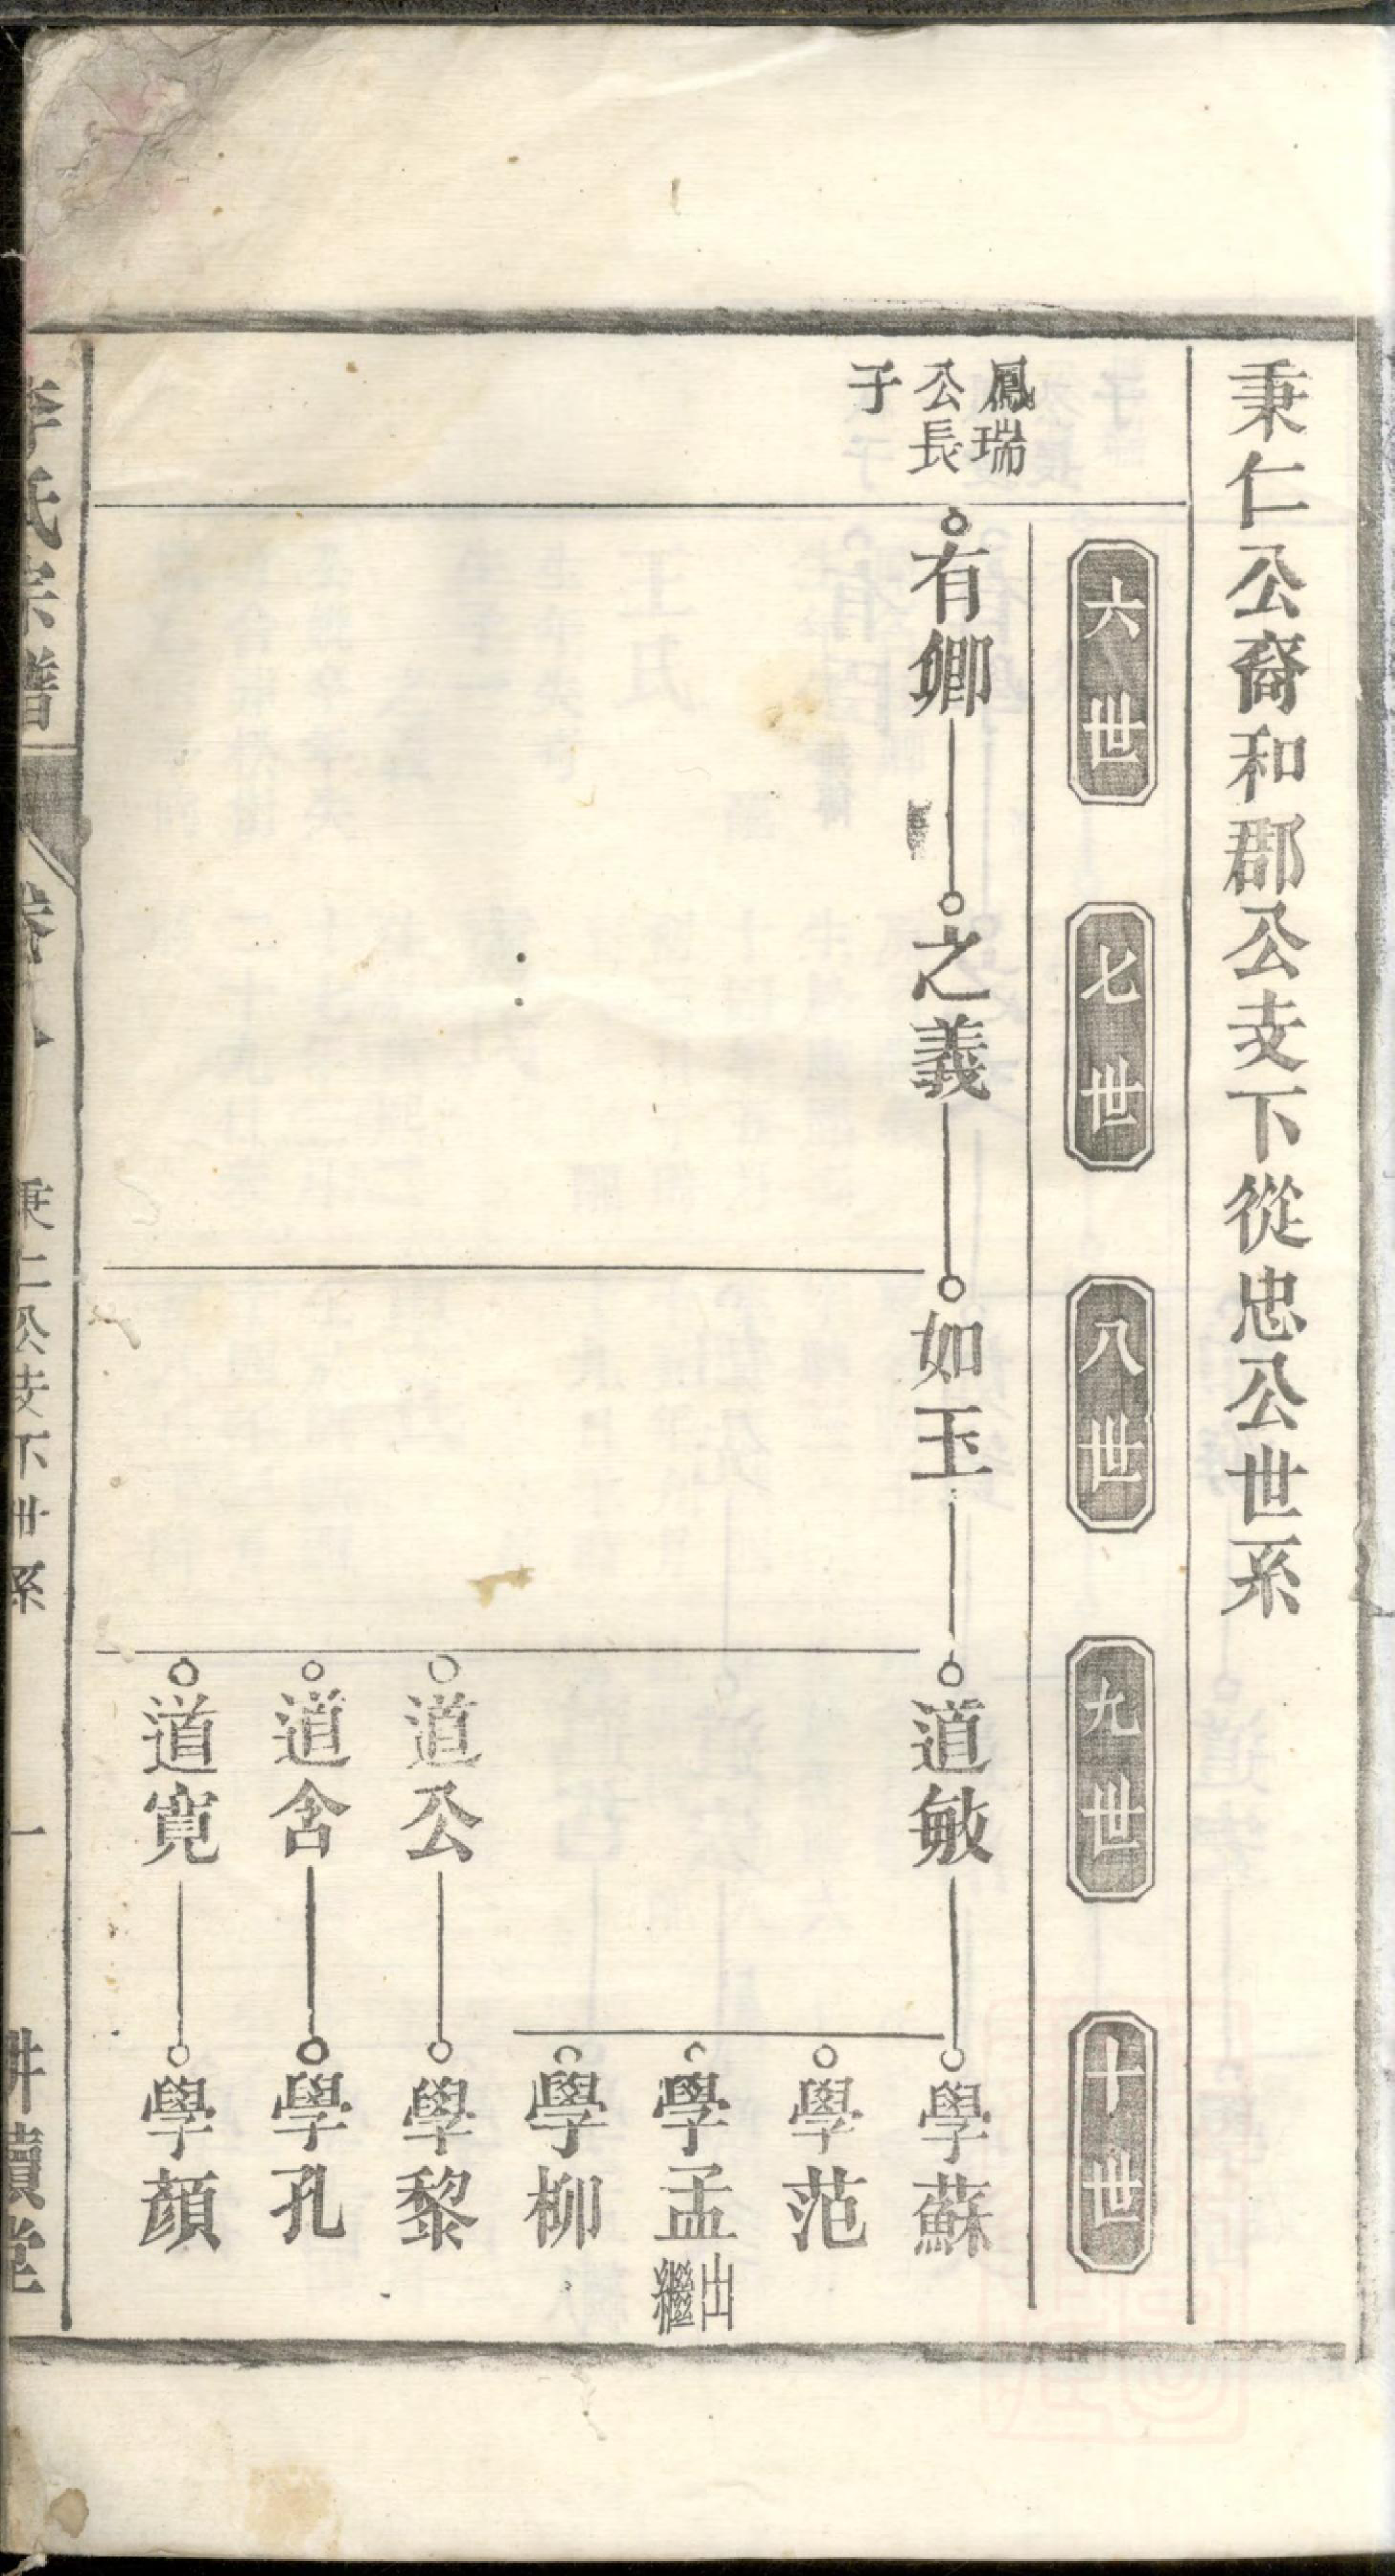 秉仁公裔和郡公支下從忠公世系
六世
七世
八世
九世
十世
鳳瑞
公長
子
有卿
之義
如玉
道敏
學蘇
學范
學孟 出繼
學柳
道公
學黎
道含
學孔
道寬
學顔
李氏宗譜
秉仁公支下世系
一
耕讀堂